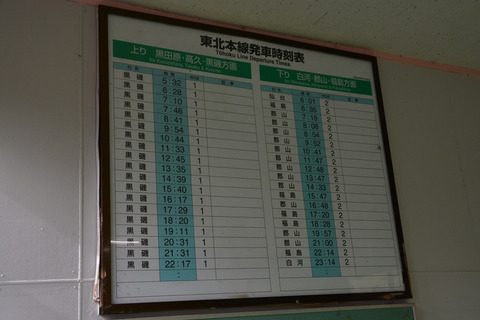 東北本線発車時刻表
Tōhoku Line Departure Times
上り 黒田原・高久・黒磯方面
黒磯 5:32 1
黒磯 6:28 1
黒磯 7:10 1
黒磯 7:46 1
黒磯 8:41 1
黒磯 9:54 1
黒磯 10:44 1
黒磯 11:33 1
黒磯 12:45 1
黒磯 13:35 1
黒磯 14:39 1
黒磯 15:40 1
黒磯 16:17 1
黒磯 17:29 1
黒磯 18:20 1
黒磯 19:11 1
黒磯 20:31 1
黒磯 21:31 1
黒磯 22:17 1
下り 白河・郡山・福島方面
仙台 6:01 2
福島 6:36 2
郡山 7:19 2
郡山 8:08 2
郡山 8:54 2
郡山 9:52 2
郡山 10:41 2
郡山 11:47 2
郡山 12:48 2
郡山 13:47 2
郡山 14:33 2
福島 15:47 2
郡山 16:48 2
福島 17:20 2
福島 18:28 2
郡山 19:57 2
郡山 21:00 2
福島 22:14 2
白河 23:14 2